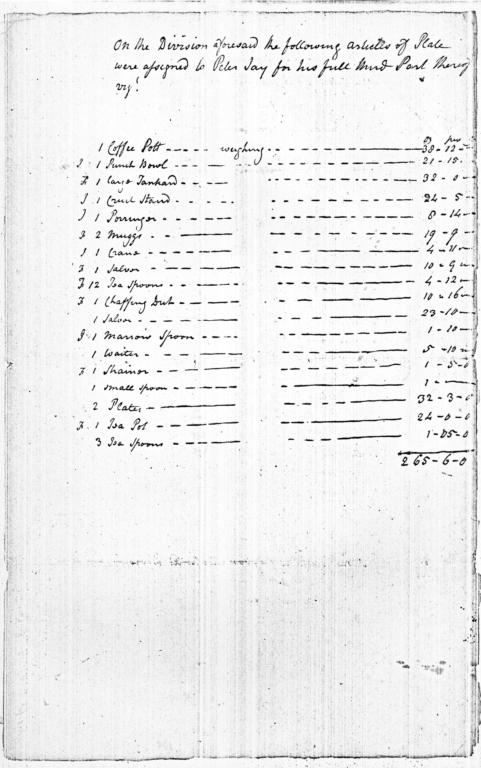 On the Division aforesaid the following articles of Plate
were assigned to Peter Jay for his full third Part thereof
viz:
oz pw
1 Coffee Pott weighing 38-12-
J 1 Punch Bowl 21-15-
1 large Tankard 32-0-
J 1 Cruet Stand 24-5-
J 1 Porringer 8-14-
2 Muggs 19-9-
J 1 Crane 4-11-
1 Salver 10-9-
12 Tea Spoons 4-12-
1 Chaffing Dish 10-16-
1 Salver 23-10-
J 1 Marrow Spoon 1-10-
1 Waiter 5-10-
1 Strainer 1-5-0
1 small spoon 1-
2 Plates 32-3-0
1 Tea Pot 24-0-0
3 Tea Spoons 1-05-0
265-6-0